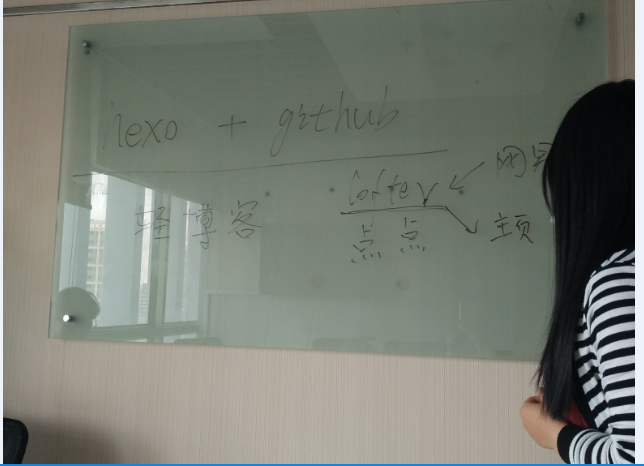 hexo + github
轻博客
Lofter
点点
主页